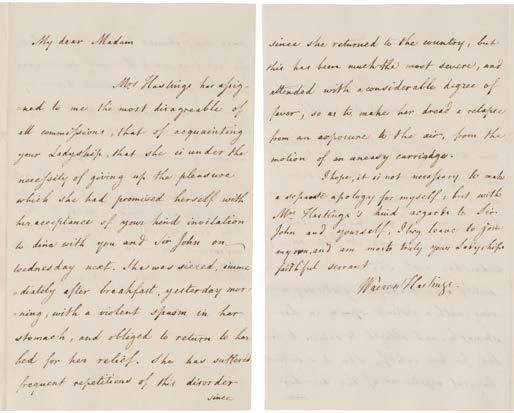 My dear Madam
Mrs Hastings has assig-
-ned to me the most disagreable of
all commissions, that of acquainting
your Ladyship, that she is under the
necessity of giving up the pleasure
which she had promised herself with
her acceptance of your kind invitation
to dine with you and Sir John on
wednesday next. She was siezed, imme
-diately after breakfast, yesterday mor-
-ning, with a violent spasm in her
stomach, and obliged to return to her
bed for her relief. She has suffered
frequent repetitions of this disorder
since
since she returned to the country; but
this has been much the most severe, and
attended with a considerable degree of
fever, so as to make her dread a relapse
from an exposure to the air, from the
motion of an uneasy carriage.
I hope, it is not necessary to make
a separate apology for myself; but with
Mrs Hastings's kind regards to Sir
John and yourself, I beg leave to join
my own, and am most truly your Ladyship's
faithful servant
Warren Hastings.